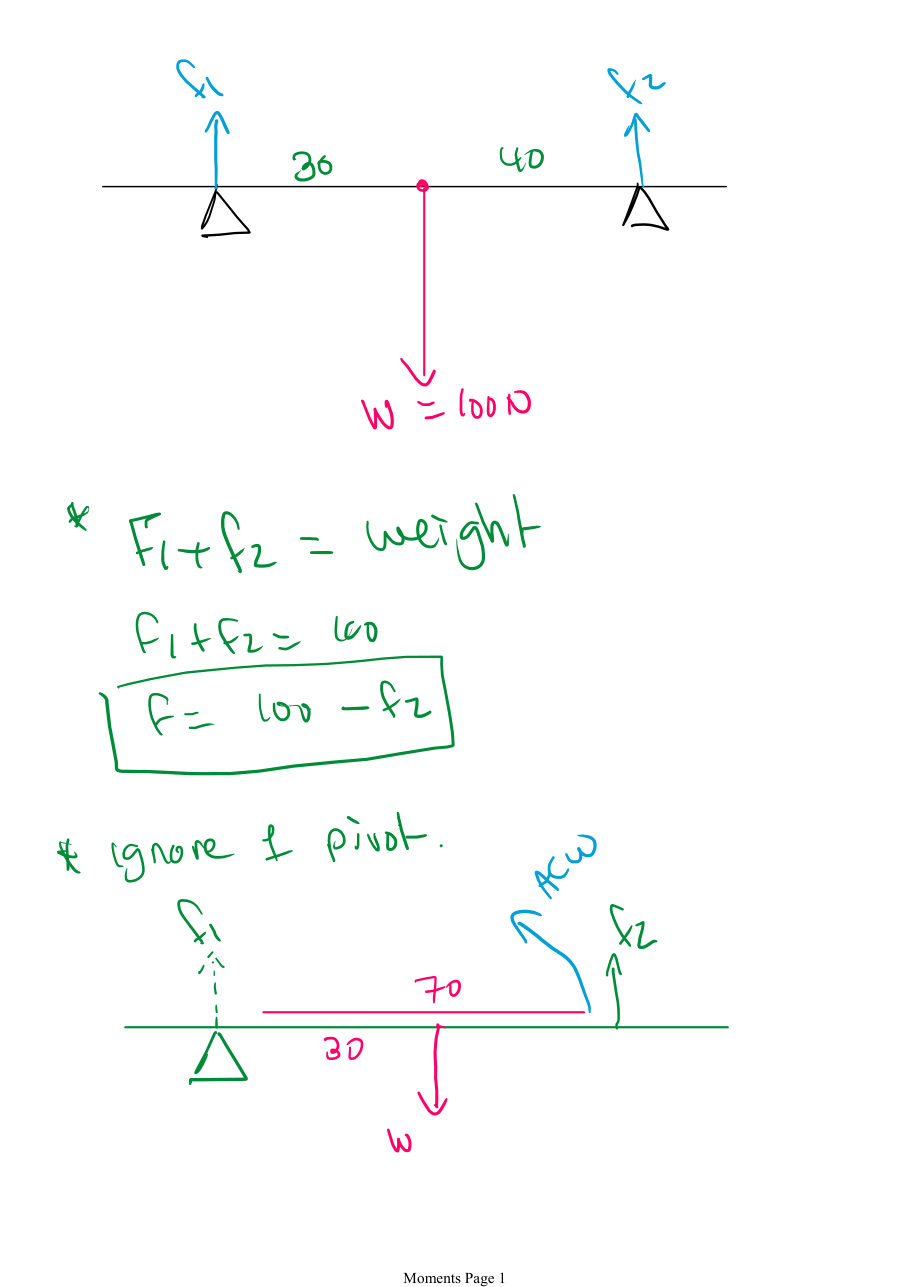 f1 f2
30 40
W = 100N
* F1 + f2 = weight
f1 + f2 = 100
f = 100 - f2
* ignore 1 pivot.
ACW
f1 f2
70
30
W
Moments Page 1